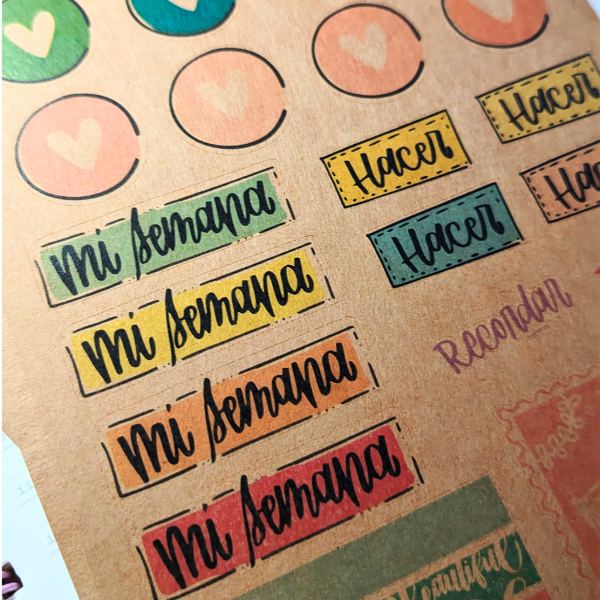 Hacer
Hacer
Hacer
mi semana
mi semana
mi semana
mi semana
Recordar
Beautiful